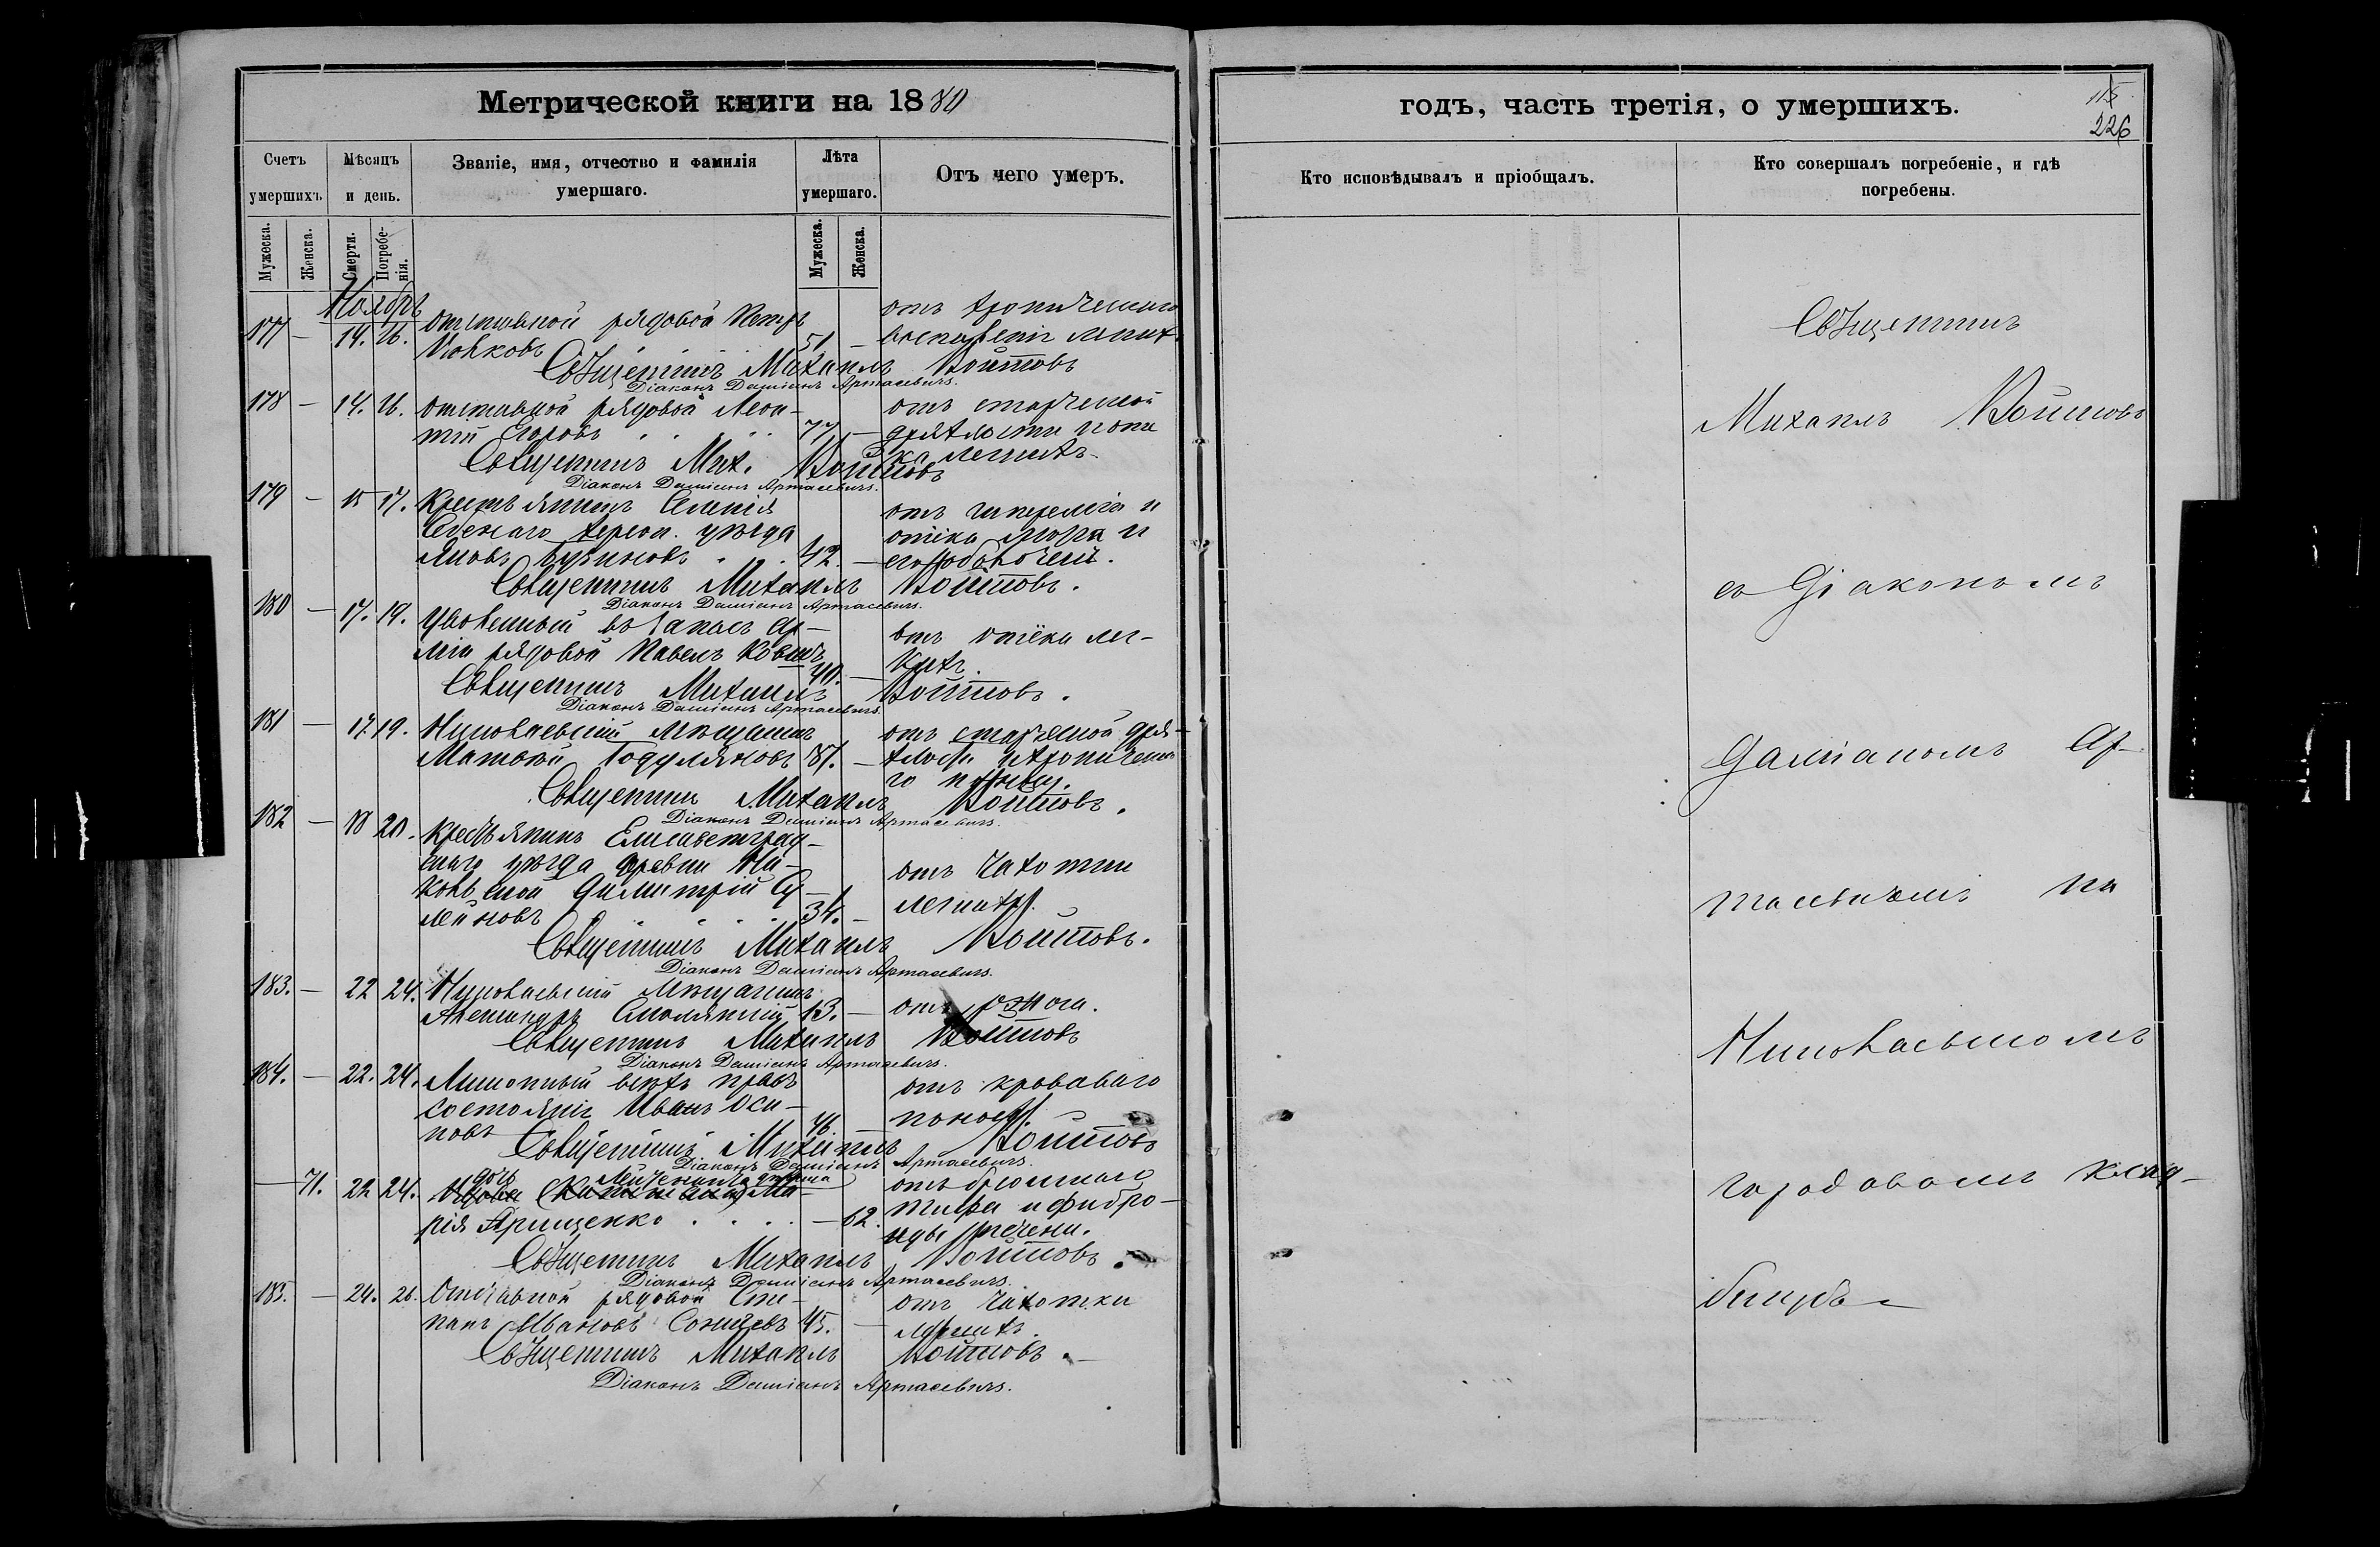 Метрической книги на 1880
Счетъ умершихъ.
Мѣсяцъ и день.
Званіе, имя, отчество и фамилія умершаго.
Лѣта умершаго.
Отъ чего умеръ.
Мужеска.
Женска.
Смерти.
Погребенія.
Мужеска.
Женска.
Ноябрь
177 — 14. 16. отставной рядовой Петръ
51 —
отъ хроническаго
Священникъ Михаилъ Войтовъ
Діаконъ Даміанъ Артасевичъ.
178 — 14. 16. отставной рядовой Леон-
тій Егоровъ . . . . 77 —
отъ старческой
дряхлости
Священникъ Мих. Войтовъ
Діаконъ Даміанъ Артасевичъ.
179 — 15 17. Крестьянинъ Селенія
херсон. уѣзда
42. —
отъ гипереміи и
отёка мозга и
Священникъ Михаилъ Войтовъ.
Діаконъ Даміанъ Артасевичъ.
180 — 17. 19. Уволенный въ запасъ ар-
міи рядовой Павелъ
40. —
отъ отёка лег-
кихъ.
Священникъ Михаилъ Войтовъ.
Діаконъ Даміанъ Артасевичъ.
181 — 17. 19. Николаевскій мѣщанинъ
Матвѣй Годуляновъ 87. —
отъ старческой дря-
хлости и хроническа-
го
Священникъ Михаилъ Войтовъ.
Діаконъ Даміанъ Артасевичъ.
182 — 18 20. Крестьянинъ Елисаветград-
скаго уѣзда деревни
Димитрій Су-
лейновъ . . . . 34. —
отъ чахотки
легкихъ.
Священникъ Михаилъ Войтовъ.
Діаконъ Даміанъ Артасевичъ.
183. — 22 24. Николаевскій мѣщанинъ
Александръ Смолянскій 13. —
отъ ожога.
Священникъ Михаилъ Войтовъ
Діаконъ Даміанъ Артасевичъ.
184. — 22. 24. Лишонный всѣхъ правъ
состоянія Иванъ Оси-
повъ 46. —
отъ кроваваго
поноса.
Священникъ Михаилъ Войтовъ
Діаконъ Даміанъ Артасевичъ.
— 71. 22 24. дочь
Вдова Ма-
рія Грищенко . . . . — 62.
отъ брюшнаго
тифа и фибро-
иды печени.
Священникъ Михаилъ Войтовъ.
Діаконъ Даміанъ Артасевичъ.
185. — 24. 26. Отставной рядовой Сте-
панъ Ивановъ 45. —
отъ чахотки
легкихъ.
Священникъ Михаилъ Войтовъ. —
Діаконъ Даміанъ Артасевичъ.
годъ, часть третія, о умершихъ.
115
226
Кто исповѣдывалъ и пріобщалъ.
Кто совершалъ погребеніе, и гдѣ погребены.
Священникъ
Михаилъ Войтовъ
съ Діакономъ
Даміаномъ Ар-
тасевичемъ на
Николаевскомъ
городовомъ клад-
бищѣ